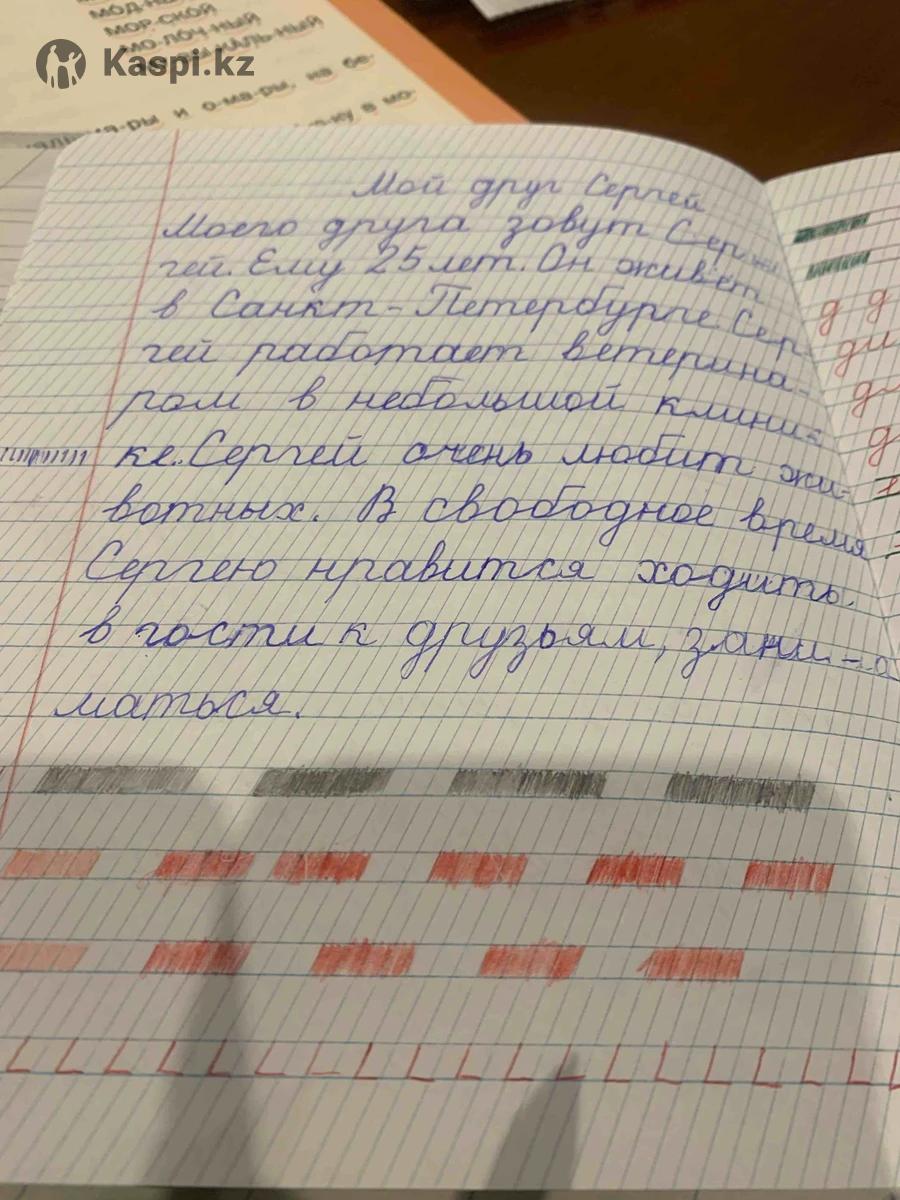 МОР-СКОЙ
МО-ЛОЧ-НЫЙ
Kaspi.kz
и о-ма-ры, на бе-
в мо-
Мой друг Сергей
Моего друга зовут Сер-
гей. Ему 25 лет. Он живёт
в Санкт-Петербурге. Сер-
гей работает ветерина-
ром в небольшой клини-
ке. Сергей очень любит жи-
вотных. В свободное время
Сергею нравится ходить.
в гости к друзьям, зани-
маться.
д д
ди
д